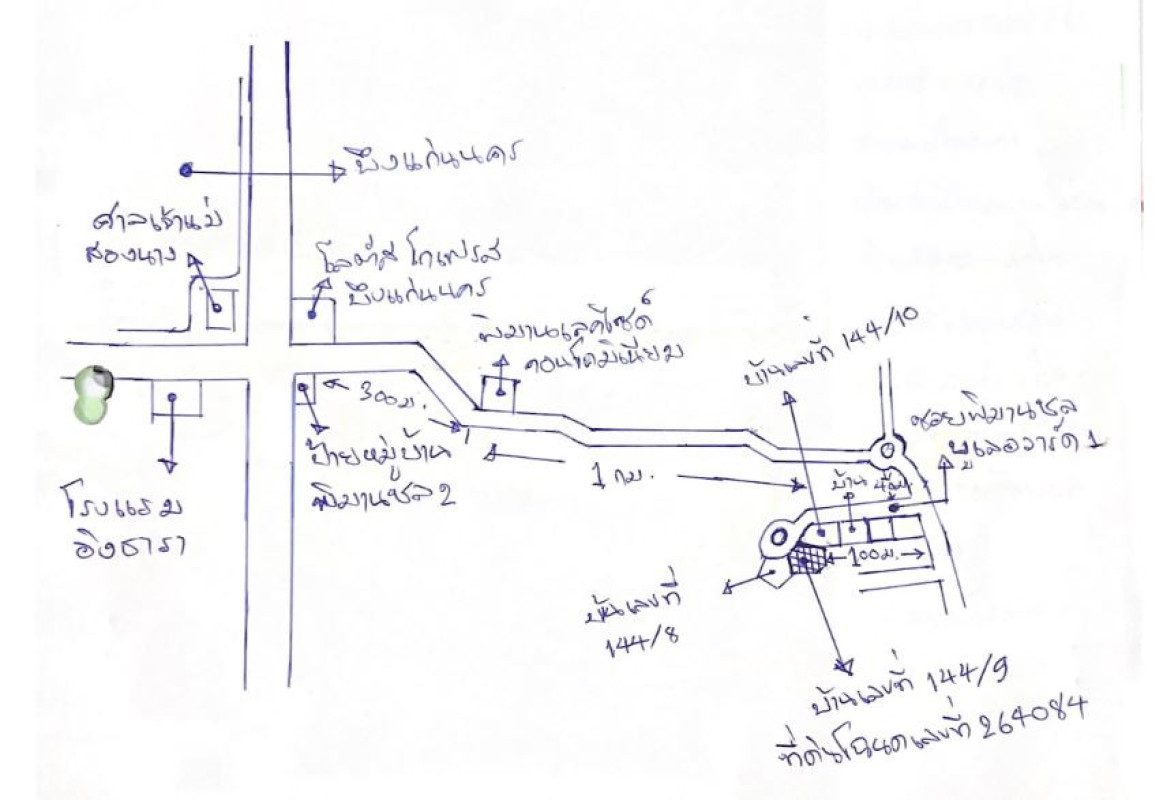 บึงแก่นนคร
ศาลเจ้าแม่
สองนาง
โลตัส โกเฟรส
บึงแก่นนคร
พิมานเลคไซด์
คอนโดมิเนียม
บ้านเลขที่ 144/10
ซอยพิมานชล
บูเลอวาร์ด 1
300ม.
ป้ายหมู่บ้าน
พิมานชล 2
1 กม.
บ้าน
โรงแรม
อิงธารา
100ม.
บ้านเลขที่
144/8
บ้านเลขที่ 144/9
ที่ดินโฉนดเลขที่ 264084